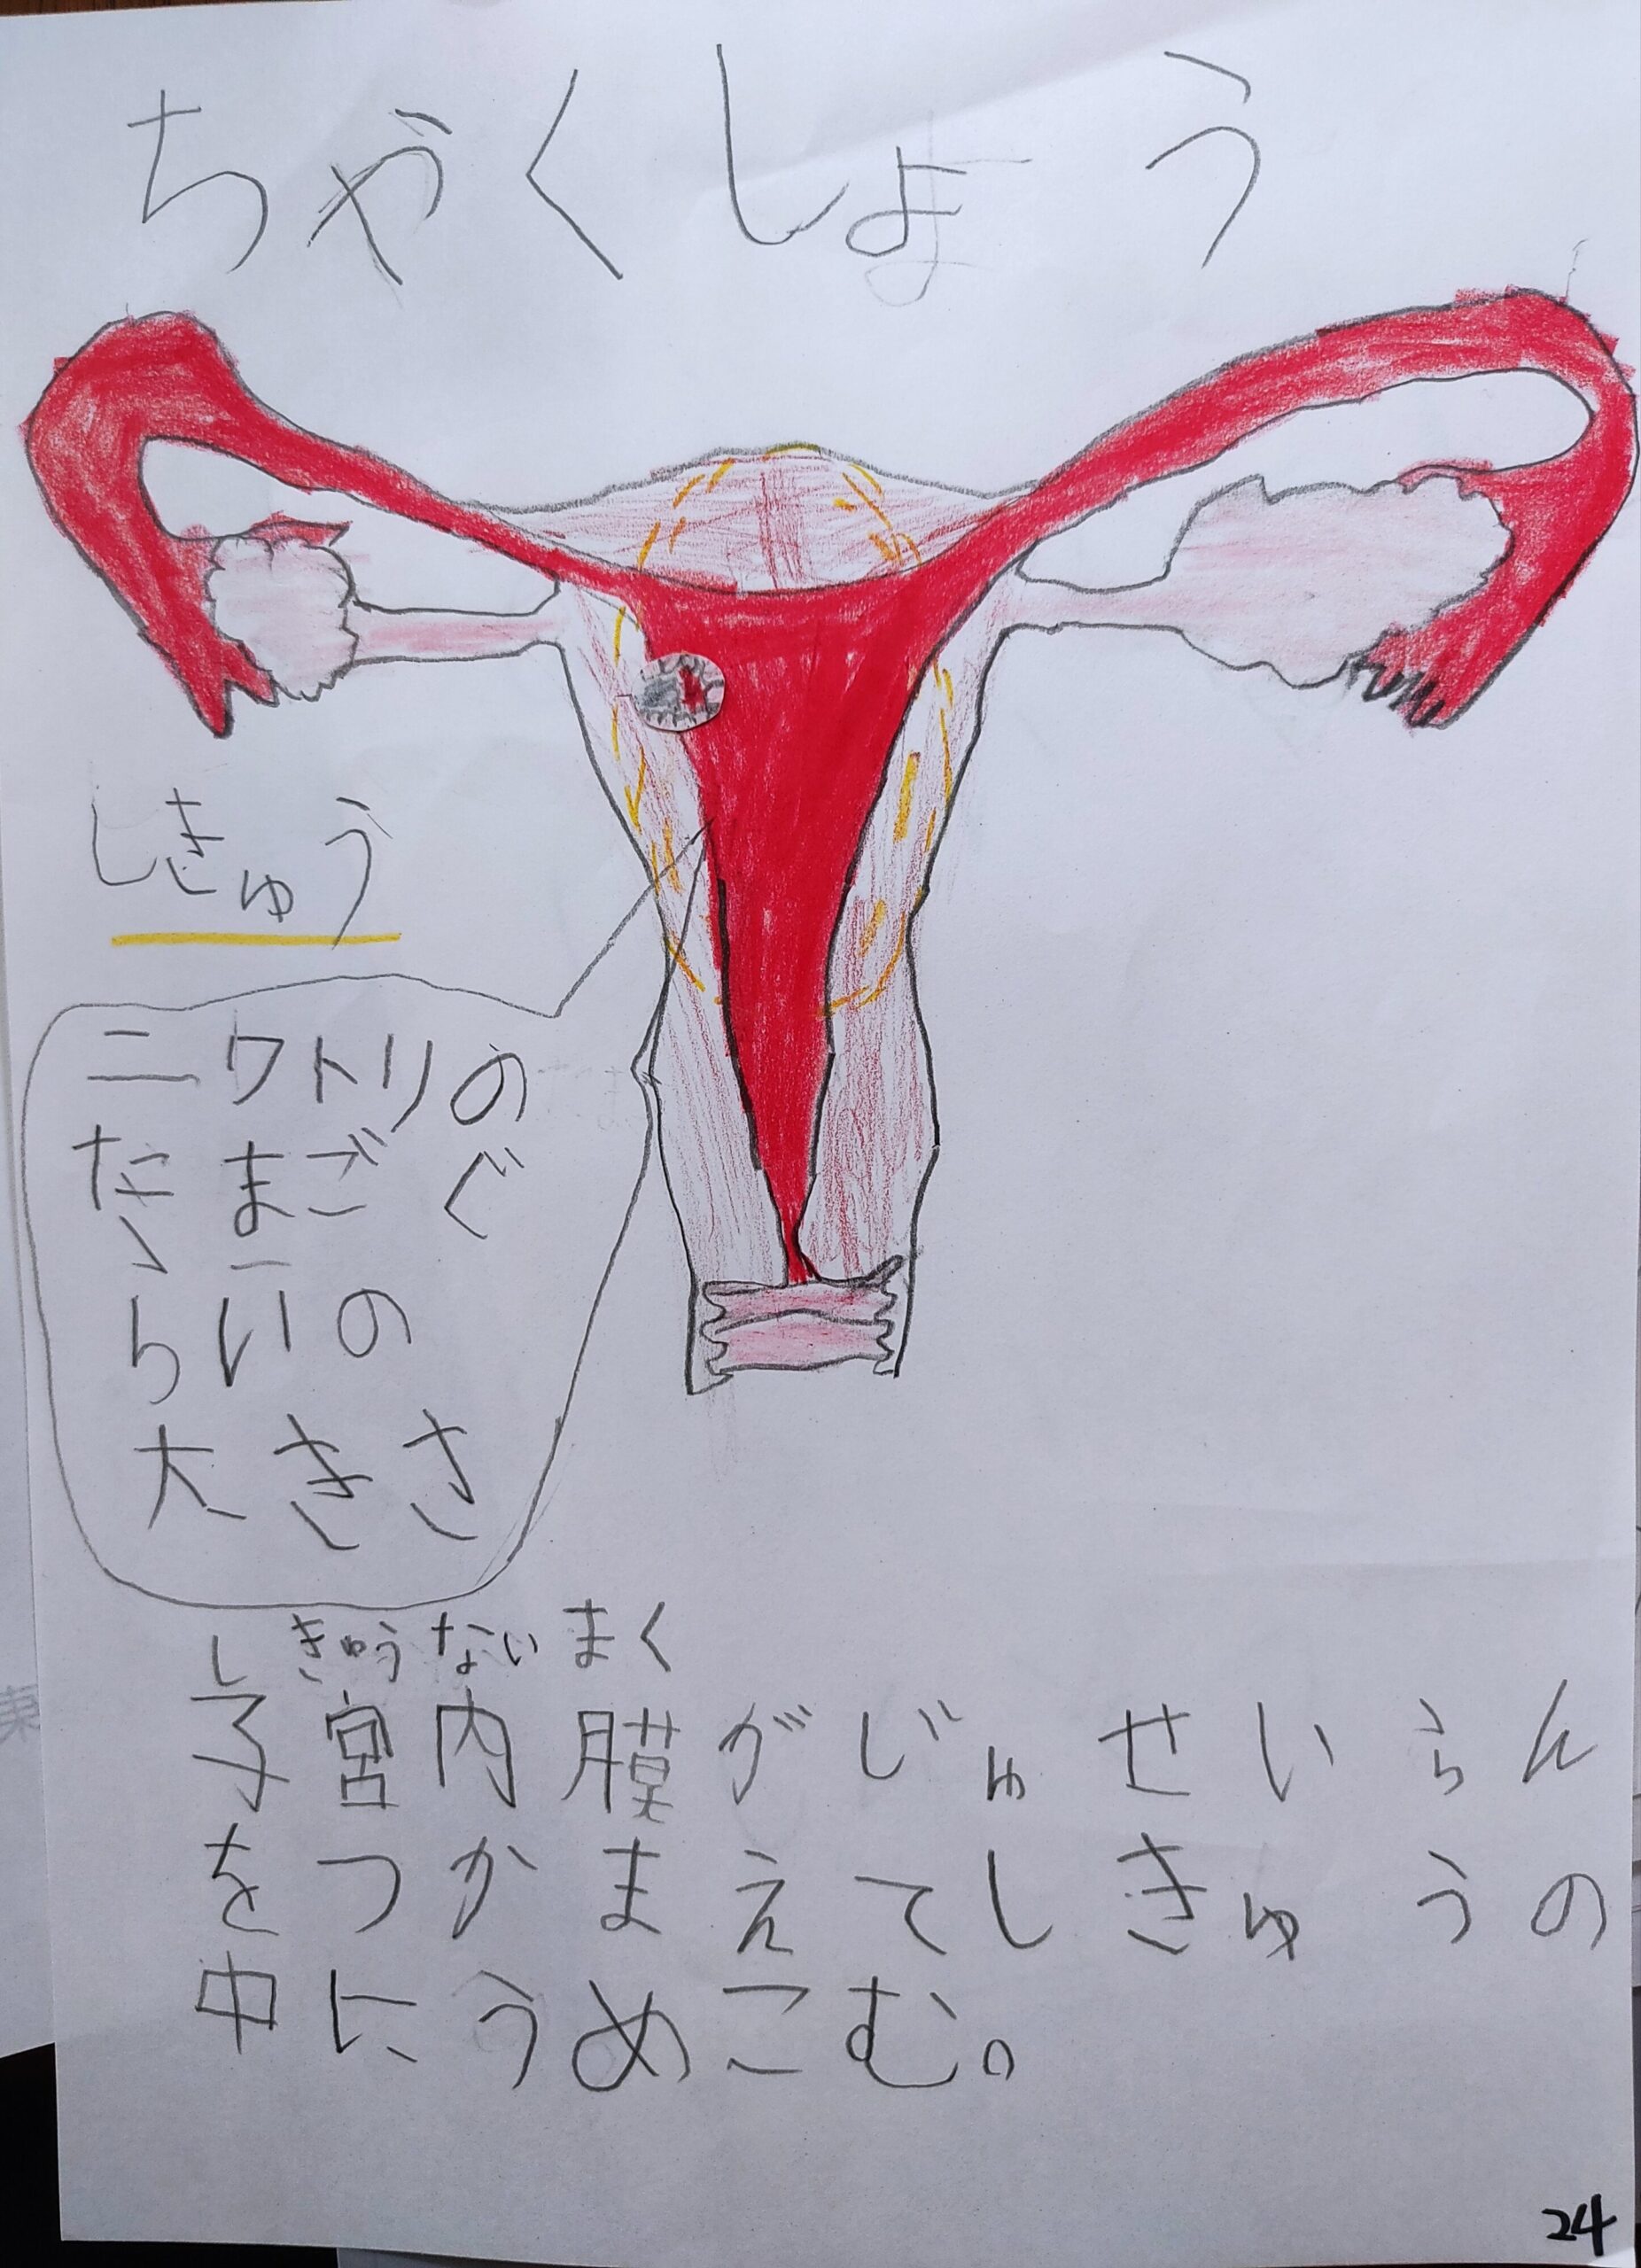 ちゃくしょう
しきゅう
ニワトリの
たまごぐ
らいの
大きさ
しきゅうないまく
子宮内膜がじゅせいらん
をつかまえてしきゅうの
中にうめこむ。
24